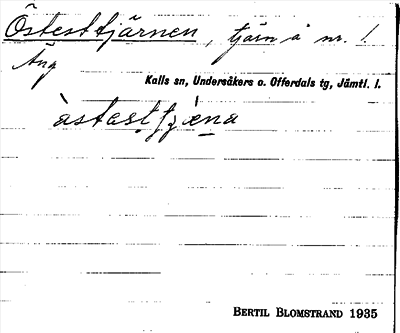 Östesttjärnen, tjärn å nr. 1
Äng
Kalls sn, Undersåkers o. Offerdals tg, Jämtl. l.
àstesttjæ̀na
BERTIL BLOMSTRAND 1935